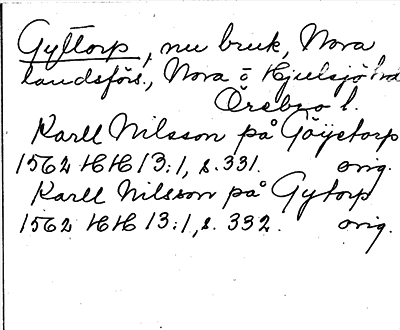 Gyttorp, nu bruk, Nora
landsförs., Nora o Hjulsjö hrd
Örebro l.
Karll Nilsson på Göijetorp
1562 HH 13:1, s. 331. orig.
Karll Nilsson på Gytorp
1562 HH 13:1, s. 332. orig.